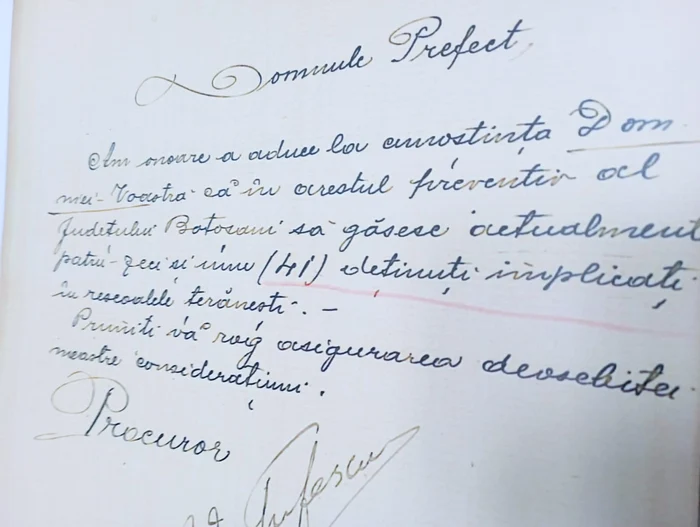 Domnule Prefect,
Am onoare a aduce la cunostința Dom
niei-Voastră că în arestul preventiv al
Județului Botosani să găsesc actualment
patru-zeci si unu (41) deținuți implicați
în rescoalele țerănești. —
Primiti vă rog asigurarea deosebitei
neastre considerațiuni.
Procuror